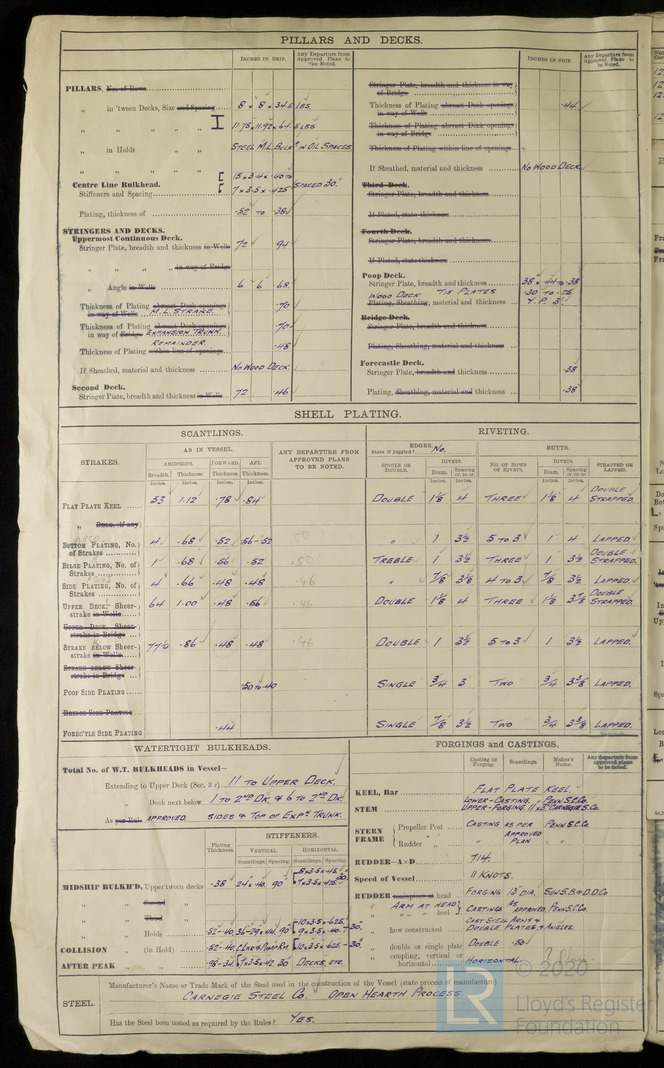 PILLARS AND DECKS.
INCHES IN SHIP.
Any Departure from Approved Plans to be Noted.
PILLARS, No. of Rows
„ in 'tween Decks, Size and Spacing 8 × 8 × 34.5 LBS.
„ „ „ „ I 11.75 × 11.92 × 64.5 LBS
„ in Holds STEEL M.L. BULKD IN OIL SPACES
Centre Line Bulkhead. 15 × 3.4 × .40 TO
Stiffeners and Spacing 7 × 3.5 × .425 SPACED 30"
Plating, thickness of .52 TO .38
STRINGERS AND DECKS.
Uppermost Continuous Deck.
Stringer Plate, breadth and thickness in Wells 72 .94
„ „ „ „ in way of Bridge
„ Angle in Wells 6 6 .68
Thickness of Plating abreast Deck openings in way of Wells M.L. STRAKE .70
Thickness of Plating abreast Deck openings in way of Bridge EXPANSION TRUNK .70
REMAINDER
Thickness of Plating within line of openings .48
If Sheathed, material and thickness NO WOOD DECK
Second Deck.
Stringer Plate, breadth and thickness in Wells 72 .46
INCHES IN SHIP.
Any Departure from Approved Plans to be Noted.
Stringer Plate, breadth and thickness in way of Bridge
Thickness of Plating abreast Deck openings in way of Wells .44
Thickness of Plating abreast Deck openings in way of Bridge
Thickness of Plating within line of openings
If Sheathed, material and thickness NO WOOD DECK
Third Deck.
Stringer Plate, breadth and thickness
If Plated, state thickness
Fourth Deck.
Stringer Plate, breadth and thickness
If Plated, state thickness
Poop Deck.
Stringer Plate, breadth and thickness 38 × .44 TO .38
WOOD DECK TIE PLATES 30 TO .36
Plating, Sheathing, material and thickness Y.P. 3"
Bridge Deck.
Stringer Plate, breadth and thickness
Plating, Sheathing, material and thickness
Forecastle Deck.
Stringer Plate, breadth and thickness .38
Plating, Sheathing, material and thickness .38
SHELL PLATING.
SCANTLINGS.
RIVETING.
STRAKES.
AS IN VESSEL.
AMIDSHIPS. FORWARD. AFT.
Breadth. Thickness. Thickness. Thickness.
Inches. Inches. Inches. Inches.
ANY DEPARTURE FROM APPROVED PLANS TO BE NOTED.
EDGES. No.
State if joggled?
SINGLE OR DOUBLE.
RIVETS.
Diam. Spacing cr. to cr.
BUTTS.
NO. OF ROWS OF RIVETS.
RIVETS.
Diam. Spacing cr. to cr.
STRAPPED OR LAPPED.
FLAT PLATE KEEL 53 1.12 .78 .84 DOUBLE 1⅛ 4 THREE 1⅛ 4 DOUBLE STRAPPED.
„ Doub. (if any)
BOTTOM PLATING, No. of Strakes 4 .68 .52 .56-.52 .50 „ 1 3½ 5 TO 3 1 4 LAPPED.
BILGE PLATING, No. of Strakes 1 .68 .56 .52 .50 TREBLE 1 3½ THREE 1 3½ DOUBLE STRAPPED.
SIDE PLATING, No. of Strakes 4 .66 .48 .48 .46 „ ⅞ 3⅛ 4 TO 3 ⅞ 3½ LAPPED.
UPPER DECK, Sheerstrake in Wells 64 1.00 .48 .56 .46 DOUBLE 1⅛ 4 THREE 1⅛ 3⅞ DOUBLE STRAPPED.
UPPER DECK, Sheerstrake in Bridge
STRAKE BELOW Sheerstrake in Wells 77½ .86 .48 .48 .46 DOUBLE 1 3½ 5 TO 3 1 3½ LAPPED.
STRAKE BELOW Sheerstrake in Bridge
POOP SIDE PLATING .50 TO .40 SINGLE ¾ 3 TWO ¾ 3⅜ LAPPED.
BRIDGE SIDE PLATING
FOREC'TLE SIDE PLATING .44 SINGLE ⅞ 3½ TWO ¾ 3⅜ LAPPED.
WATERTIGHT BULKHEADS.
Total No. of W.T. BULKHEADS in Vessel—
Extending to Upper Deck (Sec. 3 c) 11 TO UPPER DECK.
„ Deck next below 1 TO 2ND DK. & 6 TO 2ND DK.
As per Rule APPROVED. SIDES & TOP OF EXPN TRUNK.
Plating Thickness.
STIFFENERS.
VERTICAL HORIZONTAL
Scantlings Spacing Scantlings Spacing
MIDSHIP BULKH'D, Upper tween decks .38 24 × .40 90"
„ Second
„ Third
„ Holds
COLLISION (in Hold)
AFTER PEAK „ DECKS, ETC.
FORGINGS and CASTINGS.
Casting or Forging.
Scantlings.
Maker's Name.
Any departure from approved plans to be noted.
KEEL, Bar FLAT PLATE KEEL
STEM LOWER-CASTING, PENN S.C.CO. UPPER-FORGING. 11 × 3. CARNEGIE S. CO.
STERN FRAME
Propeller Post CASTING AS PER APPROVED PLAN PENN S.C.CO.
Rudder „ „ „
RUDDER—A×D 714.
Speed of Vessel 11 KNOTS.
RUDDER mainpiece at head FORGING 13" DIA. SUN S.B. & D.D. CO
„ ARM AT HEAD & heel CASTINGS AS APPROVED. PENN S.C.CO.
„ how constructed CAST STEEL ARMS & DOUBLE PLATES & ANGLES.
„ double or single plate DOUBLE .50
„ coupling, vertical or horizontal HORIZONTAL
STEEL.
Manufacturer's Name or Trade Mark of the Steel used in the construction of the Vessel (state process of manufacture)
CARNEGIE STEEL CO. OPEN HEARTH PROCESS
Has the Steel been tested as required by the Rules? YES.
© 2020
LR
Lloyd's Register
Foundation